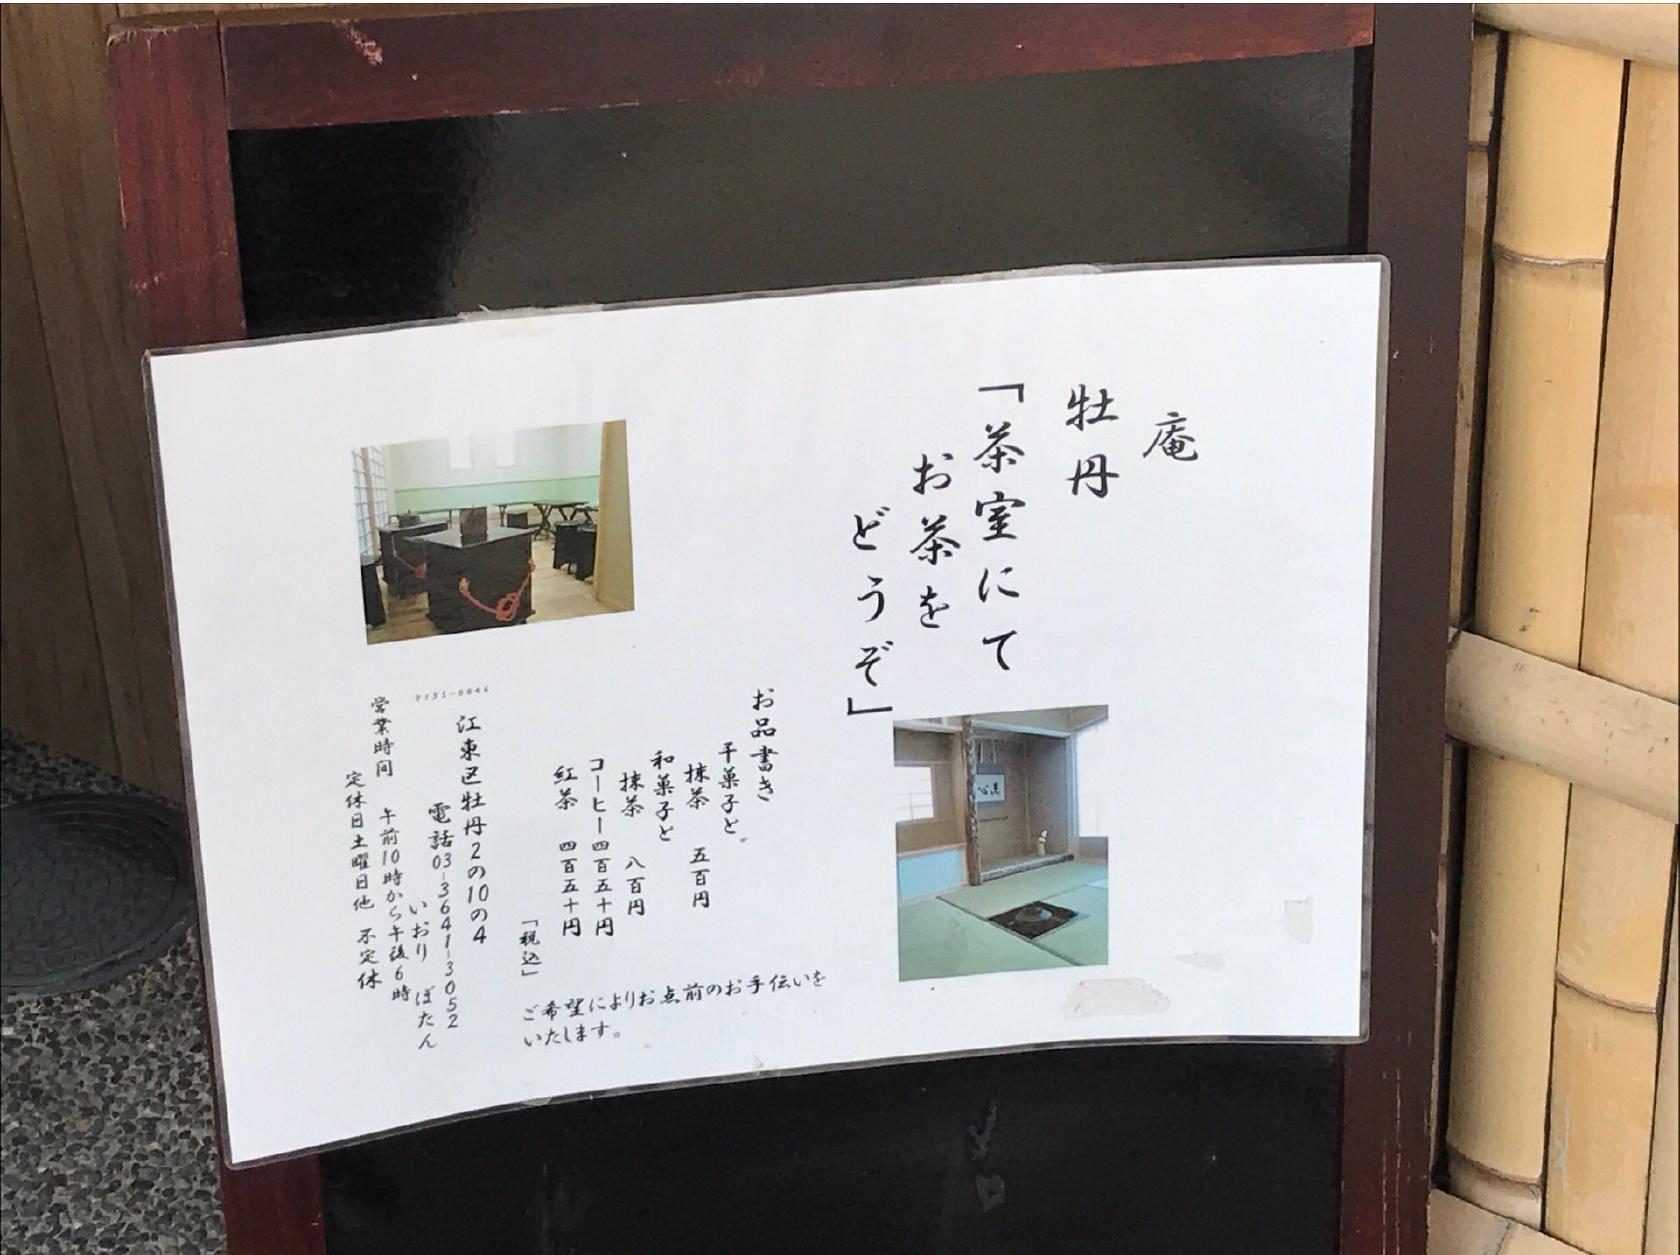 庵
牡丹
「茶室にて
お茶を
どうぞ」
お品書き
干菓子と
抹茶 五百円
和菓子と
抹茶 八百円
コーヒー四百五十円
紅茶 四百五十円
「税込」
ご希望によりお点前のお手伝いを
いたします。
〒135-0046
江東区牡丹2の10の4
電話03-3641-3052
いおり ぼたん
営業時間 午前10時から午後6時
定休日土曜日他 不定休